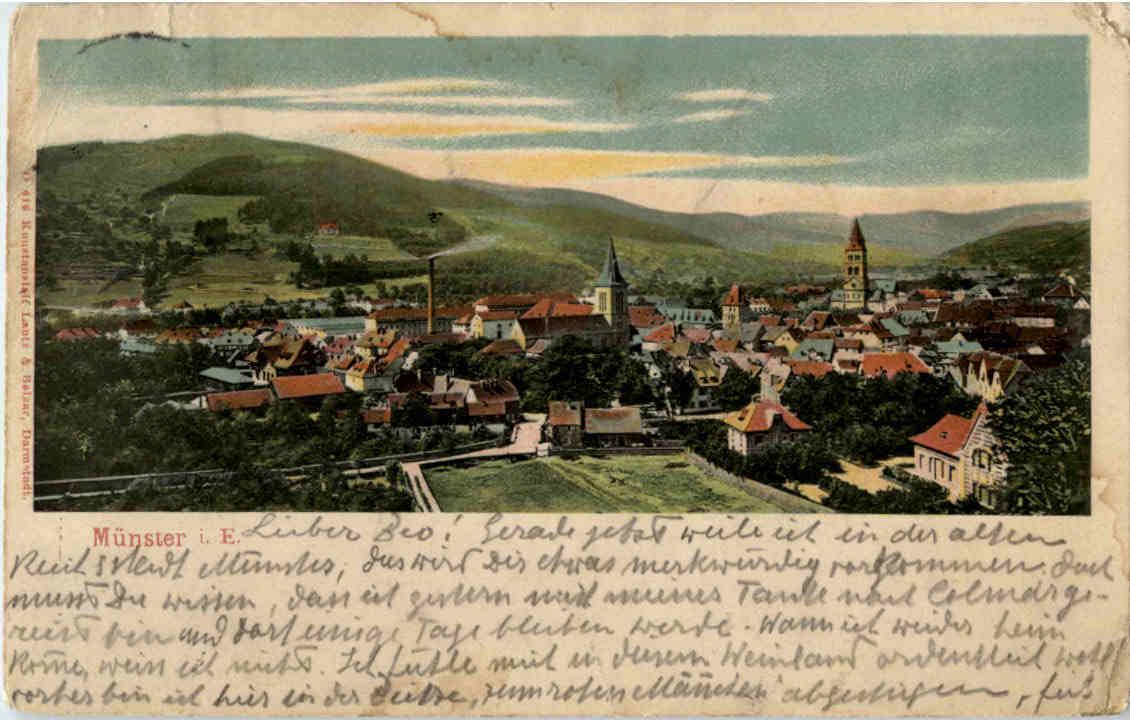 416 Kunstanstalt Lautz & Balzar, Darmstadt.
Münster i. E.
Lieber Beo! Gerade jetzt weile ich in der alten
Reichsstadt Münster, das wird Dir etwas merkwürdig vorkommen. Doch
musst Du wissen, dass ich gestern mit meiner Tante nach Colmar ge-
reist bin und dort einige Tage bleiben werde. Wann ich wieder heim
komme, weiss ich nicht. Ich fühle mich in diesem Weinland ordentlich wohl
vorher bin ich hier in der "zum roten Männchen" abgestiegen,